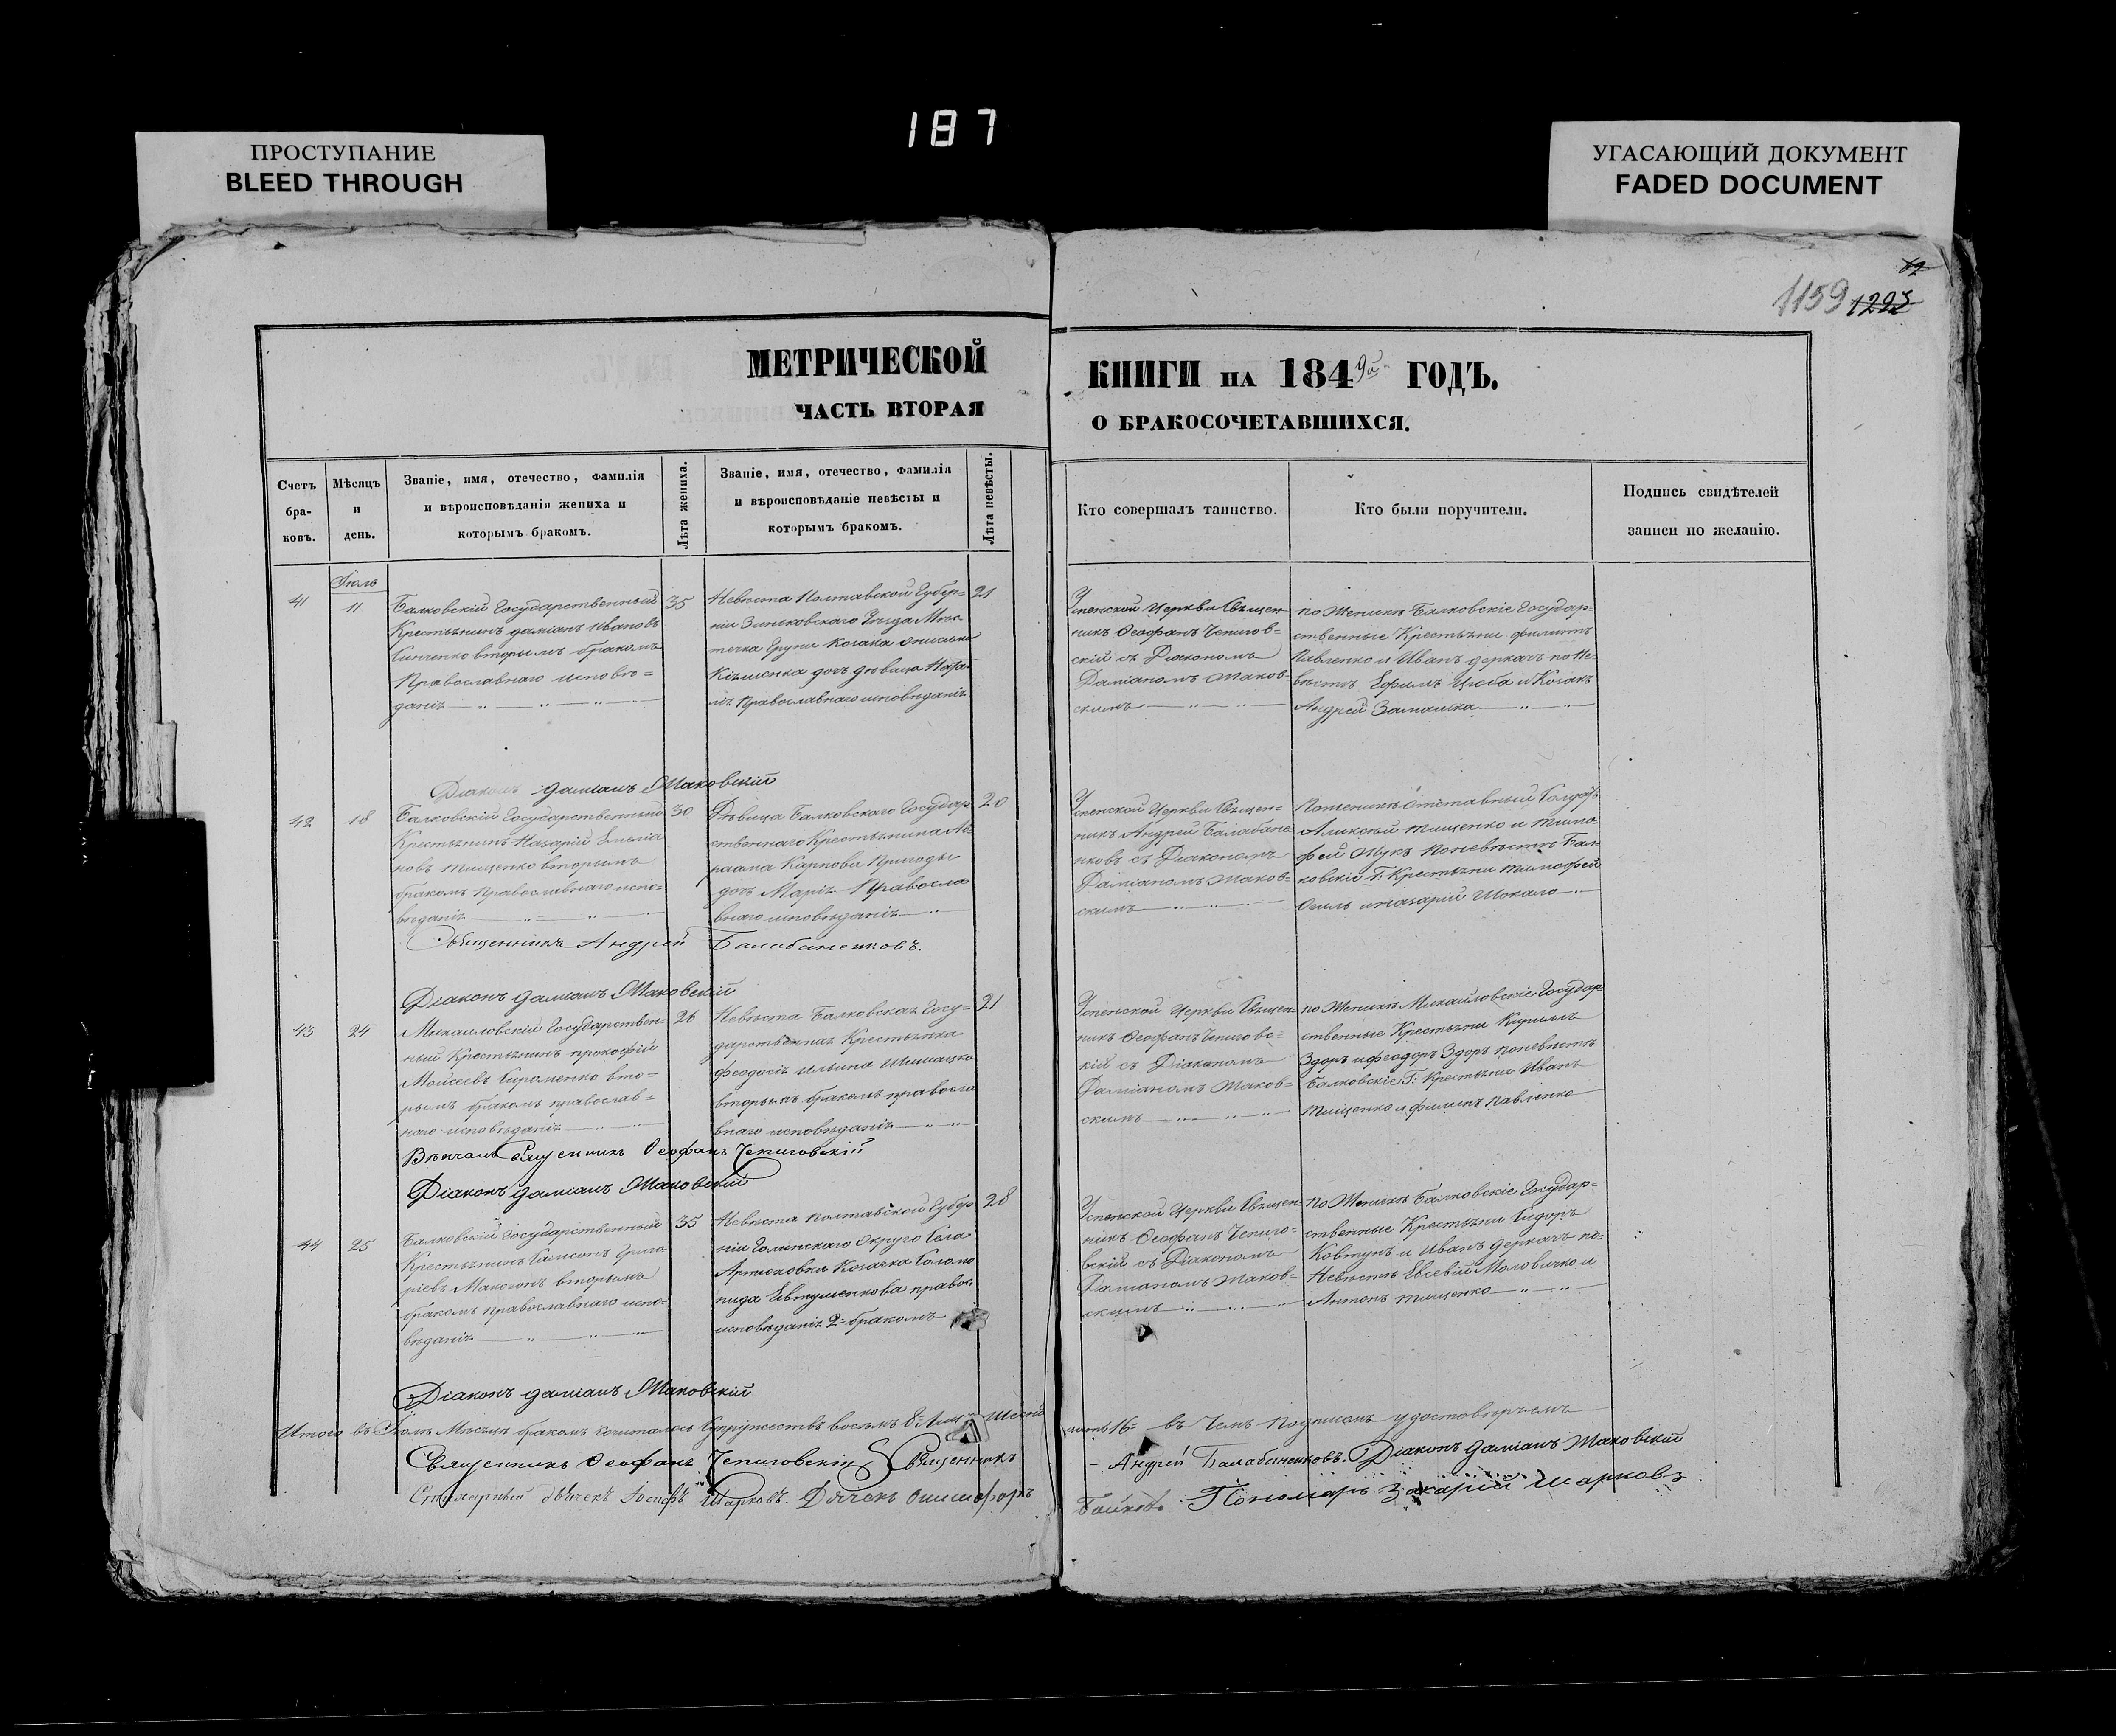 187
ПРОСТУПАНИЕ
BLEED THROUGH
УГАСАЮЩИЙ ДОКУМЕНТ
FADED DOCUMENT
1159 1223
МЕТРИЧЕСКОЙ
ЧАСТЬ ВТОРАЯ
КНИГИ НА 1849й ГОДЪ.
О БРАКОСОЧЕТАВШИХСЯ.
Счетъ
бра-
ковъ.
Мѣсяцъ
и
день.
Званіе, имя, отечество, фамилія
и вѣроисповѣданія жениха и
которымъ бракомъ.
Лѣта жениха.
Званіе, имя, отечество, фамилія
и вѣроисповѣданіе невѣсты и
которымъ бракомъ.
Лѣта невѣсты.
Кто совершалъ таинство.
Кто были поручители.
Подпись свидѣтелей
записи по желанію.
41
Іюль
11
Балковскій Государственный
Крестьянинъ даміанъ Ивановъ
вторымъ бракомъ
Православнаго исповѣ=
данія
35
Невѣста Полтавской Губер=
ніи Зиньковскаго Уѣзда Мѣс=
течка Груни Козака
дочь дѣвица
Православнаго исповѣданія
21
Успенской Церкви Священ=
никъ Ѳеофанъ Чепигов=
скій съ Діакономъ
Даміаномъ Маков=
скимъ
по Женихѣ Балковскіе Государ=
ственные Крестьяни филипъ
Павленко и Иванъ деркачъ по Не=
вѣстѣ Ефимъ и Козакъ
Андрей
Діаконъ даміанъ Маковскій
42
18
Балковскій Государственный
Крестьянинъ Назарій Емеліа
новъ тищенко вторымъ
бракомъ Православнаго испо=
вѣданія
30
Дѣвица Балковскаго Государ
ственнаго Крестьянина Ав
раама Карпова Пригоды
дочь Марія Правосла
внаго исповѣданія
20
Успенской Церкви Священ=
никъ Андрей Балабане
нковъ съ Діакономъ
Даміаномъ Маков=
скимъ
Поженихѣ отставный Солдатъ
Аликсѣй тищенко и тимо
фей Жукъ Поневѣстѣ Бал
ковскіе Г: Крестьяни тимофей
и назарій Шокало
Священникъ Андрей Балабаненковъ.
Діаконъ даміанъ Маковскій
43
24
Михайловскій Государствен=
ный Крестьянинъ прокофій
Моисеевъ вто=
рымъ бракомъ православ=
наго исповѣданія
26
Невѣста Балковская Госу=
дарственная Крестьянка
феодосія Ильина
вторымъ бракомъ правосла
внаго исповѣданія
21
Успенской Церкви Священ
никъ Ѳеофанъ Чепиговс=
кій съ Діакономъ
Даміаномъ Маков=
скимъ
по Женихѣ Михайловскіе Государ
ственные Крестьяни Кирилъ
Здоръ и феодоръ Здоръ поневѣстѣ
Балковскіе Г: Крестьяне Иванъ
Тищенко и филипъ Павленко
Вѣнчалъ Священникъ Ѳеофанъ Чепиговскій
Діаконъ даміанъ Маковскій
44
25
Балковскій Государственный
Крестьянинъ Самсонъ Григо
ріевъ Макогонъ вторымъ
бракомъ православнаго испо=
вѣданія
35
Невѣста Полтавской Губер
ніи Округа Села
Артюховки Козачка
Евтушенкова правос
исповѣданія 2= бракомъ
28
Успенской Церкви Священ
никъ Ѳеофанъ Чепиго=
вскій съ Діакономъ
Даміаномъ Маков=
скимъ
по Женихѣ Балковскіе Государ=
ственные Крестьяни Сидоръ
Ковтунъ и Иванъ деркачъ по=
Невѣстѣ Евсевій Моловичко и
Антонъ тищенко
Діаконъ даміанъ Маковскій
Итого въ Іюлѣ Мѣсяцѣ бракомъ сочеталось Супружествъ восемъ 8= Лицъ Шесн
цать 16= въ Чемъ Подписомъ удостовѣряемъ
Священникъ Ѳеофанъ Чепиговскій Священникъ
- Андрей Балабаненковъ. Діаконъ даміанъ Маковскій
дьячекъ Іосифъ Шарковъ. Дячекъ Онисифоръ
Байковъ Пономарь Захарій Шарковъ